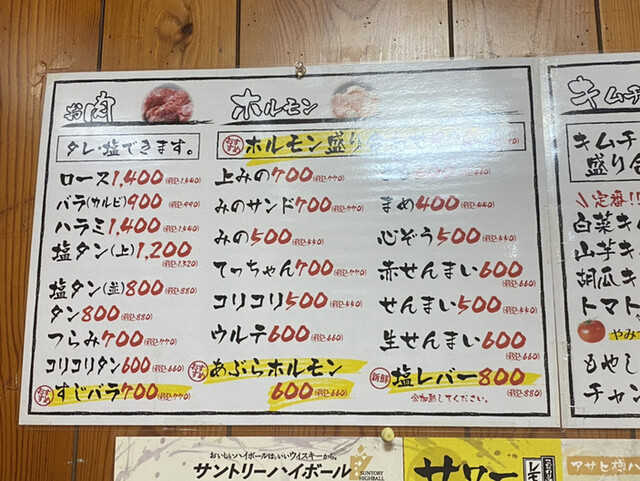 お肉
タレ・塩できます。
ロース1,400(税込1,540)
バラ(カルビ)900(税込990)
ハラミ1,400(税込1,540)
塩タン(上)1,200
(税込1,320)
塩タン(並)800(税込880)
タン800(税込880)
つらみ700(税込770)
コリコリタン600(税込660)
おすすめ すじバラ700(税込770)
ホルモン
おすすめ ホルモン盛り
上みの700(税込770)
みのサンド700(税込770)
みの500(税込550)
てっちゃん700(税込770)
コリコリ500(税込550)
ウルテ600(税込660)
おすすめ あぶらホルモン
600(税込660)
まめ400(税込440)
心ぞう500(税込550)
赤せんまい600
(税込660)
せんまい500(税込550)
生せんまい600
(税込660)
新鮮 塩レバー800
(税込880)
※加熱してください。
キムチ
キムチ
盛り合
定番!!
白菜キ
山芋キ
胡瓜キ
トマト
やみつ
もやし
チャン
おいしいハイボールは、いいウイスキーから。
サントリーハイボール
SUNTORY
HIGHBALL
サワー
アサヒ樽ハ